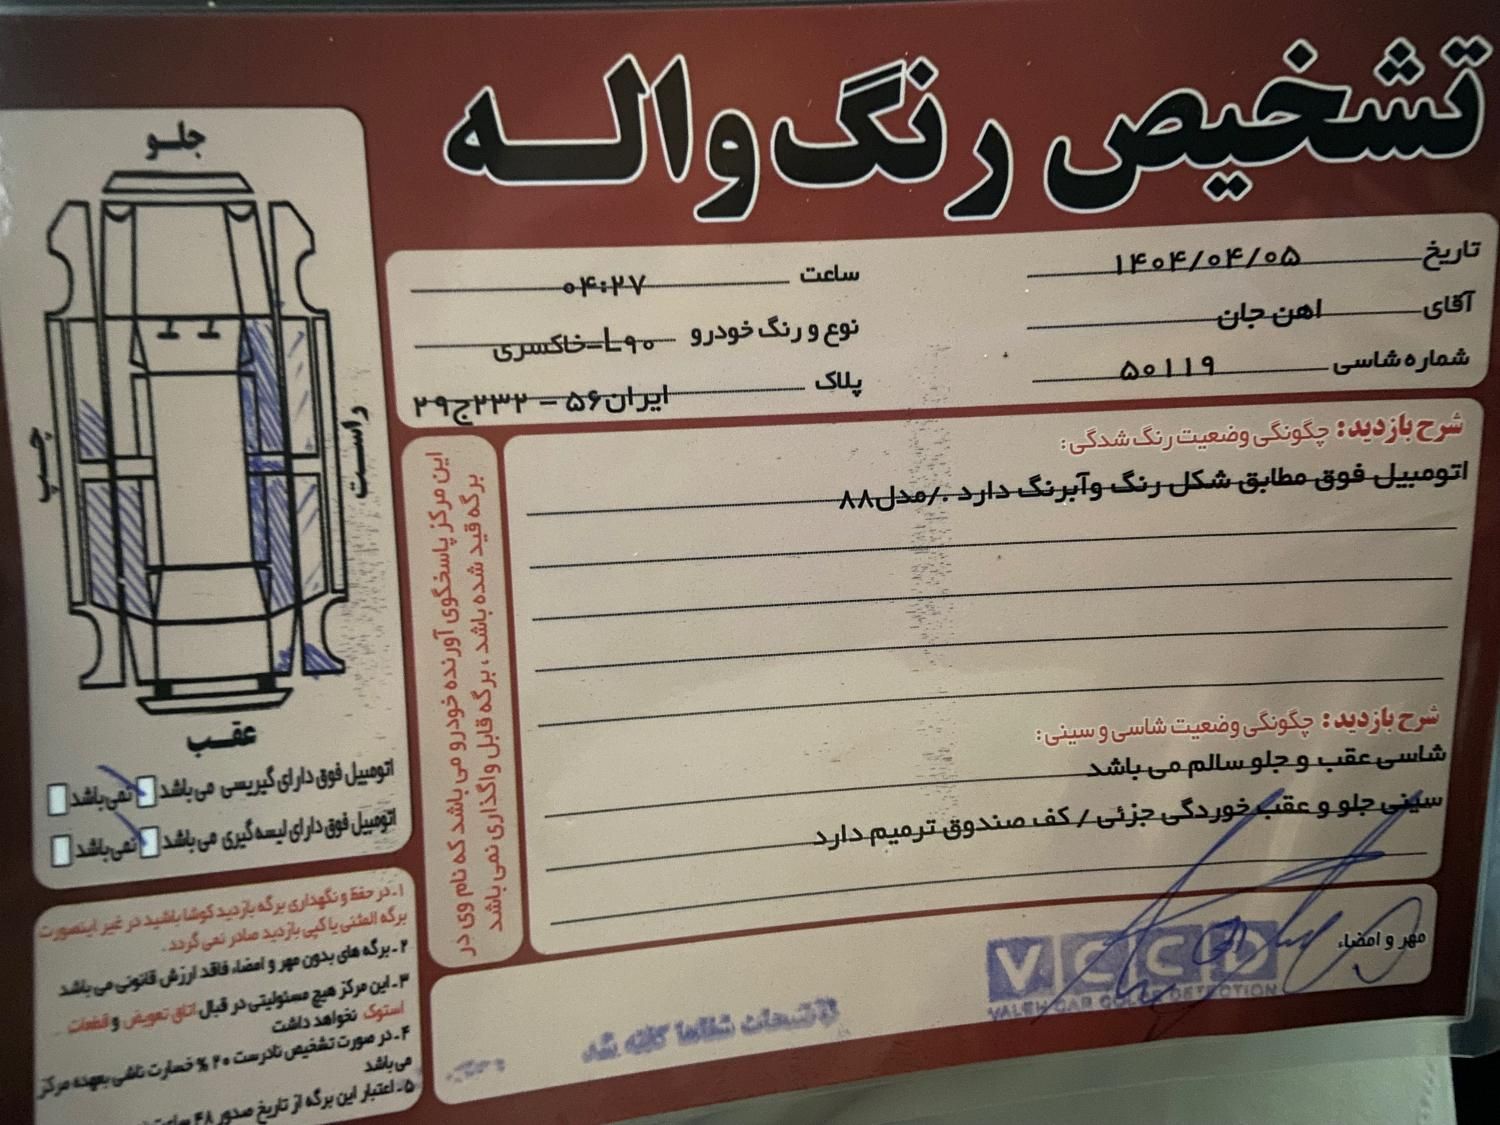 تشخیص رنگ واله
تاریخ ۱۴۰۴/۰۴/۰۵
ساعت ۰۴:۲۷
آقای اهن جان
نوع و رنگ خودرو L۹۰-خاکسری
شماره شاسی ۵۰۱۱۹
پلاک ایران۵۶ - ۲۳۲ج۲۹
شرح بازدید: چگونگی وضعیت رنگ شدگی:
اتومبیل فوق مطابق شکل رنگ وآبرنگ دارد ./مدل۸۸
شرح بازدید: چگونگی وضعیت شاسی و سینی:
شاسی عقب و جلو سالم می باشد
سینی جلو و عقب خوردگی جزئی / کف صندوق ترمیم دارد
مهر و امضاء
VCCD
VALEH CAR COLOR DETECTION
این مرکز پاسخگوی آورنده خودرو می باشد که نام وی در
برگه قید شده باشد ، برگه قابل واگذاری نمی باشد
جلو
چپ
راست
عقب
اتومبیل فوق دارای گیریسی می باشد نمی باشد
اتومبیل فوق دارای لیسه گیری می باشد نمی باشد
۱ـ در حفظ و نگهداری برگه بازدید کوشا باشید در غیر اینصورت
برگه المثنی یا کپی بازدید صادر نمی گردد .
۲ـ برگه های بدون مهر و امضاء فاقد ارزش قانونی می باشد
۳ـ این مرکز هیچ مسئولیتی در قبال اتاق تعویض و قطعات
استوک نخواهد داشت
۴ـ در صورت تشخیص نادرست ۲۰ % خسارت ناشی بعهده مرکز
می باشد
۵ـ اعتبار این برگه از تاریخ صدور ۴۸ ساعت